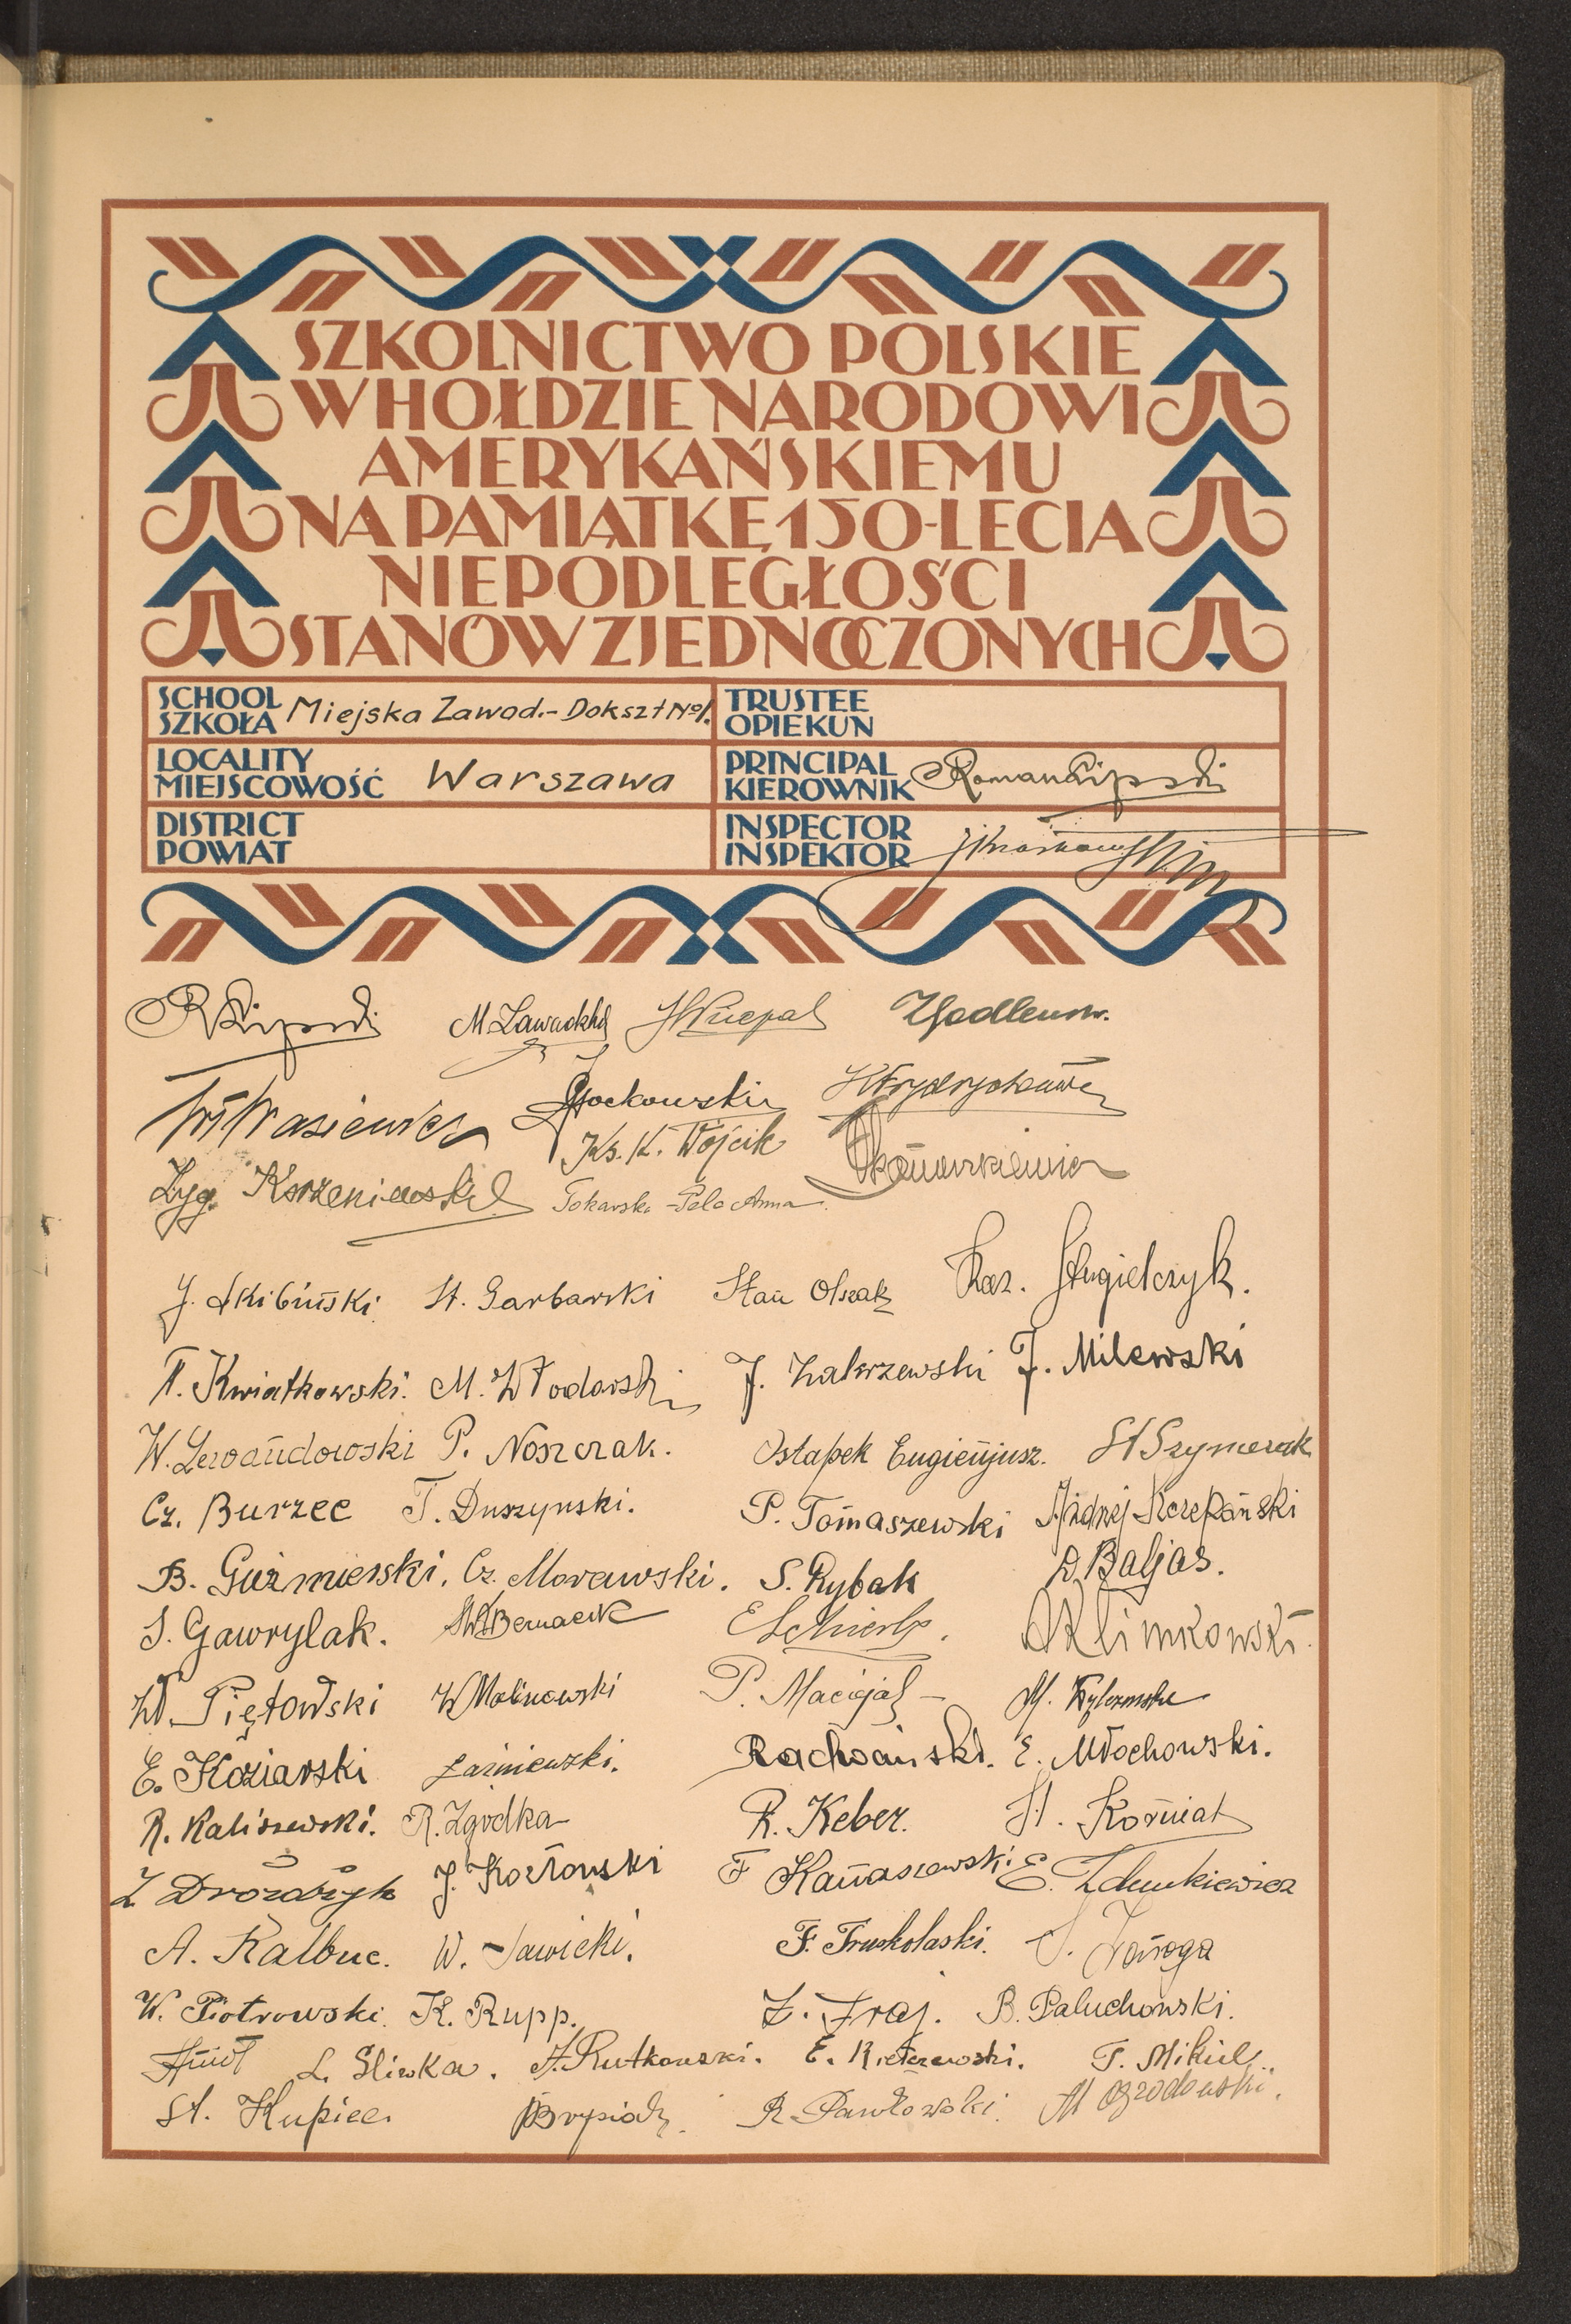 SZKOLNICTWO POLSKIE
W HOŁDZIE NARODOWI
AMERYKAŃSKIEMU
NA PAMIĄTKĘ 150-LECIA
NIEPODLEGŁOŚCI
STANÓW ZJEDNOCZONYCH
SCHOOL
SZKOŁA Miejska Zawod.-Dokszt No1.
TRUSTEE
OPIEKUN
LOCALITY
MIEJSCOWOŚĆ Warszawa
PRINCIPAL
KIEROWNIK Roman Lipski
DISTRICT
POWIAT
INSPECTOR
INSPEKTOR
R Lipski M. Zawadzka
Ks. K. Wójcik
Zyg. Korzeniewski Tokarska-Pelc Anna
J. Skibiński St. Garbarski Stan Olszak Kaz. Sługielczyk.
T. Kwiatkowski. M. Włodarski J. Zakrzewski J. Milewski
W. Lewandowski P. Noszczak. Ostapek Eugienjusz. St Szymczak
Cz. Burzec T. Duszyński. P. Tomaszewski Andrzej Szczepański
B. Guźmierski. Cz. Morawski. S. Rybak D. Baljas.
S. Gawrylak. Bernacik Klimkowski.
Wł. Piętowski W Malinowski P. Maciejak M.
E. Koziarski Łaźniewski. Rachoański. E. Młochowski.
R. Kaliszewski. R. Zgódka R. Keber. St. Korniat
Z Drozdzyk J. Kozłowski F Kanaszewski E. Zdunkiewicz
A. Kalbuc. W. Sawicki. F. Truskolaski. S. Zaręga
W. Piotrowski. K. Rupp. Z. Fraj. B. Paluchowski.
L. Sliwka. A. Rutkowski. E. Kietczewski. T. Mikiel.
St. Kupiec. R Pawłowski. M Ogrodowski.